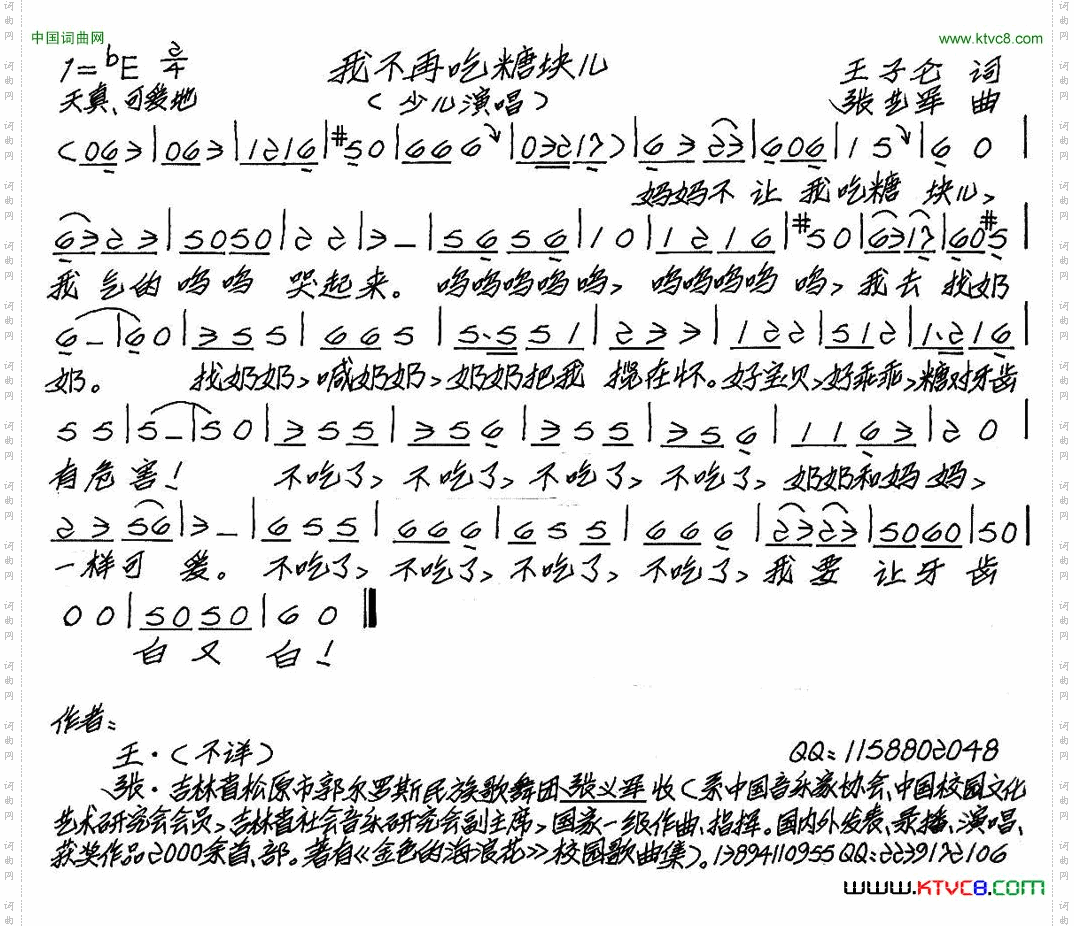 中国词曲网 www.ktvc8.com
1=bE 2/4 我不再吃糖块儿 王子仑 词
天真、可爱地 (少儿演唱) 张艺军 曲
(063|063|1216|#50|666|03217)|63 23|606|1 5|6 0|
妈妈不让我吃糖块儿,
6323|5050|22|3-|5656|10|1216|#50|6317|60#5|
我气的呜呜哭起来。呜呜呜呜呜,呜呜呜呜呜,我去找奶
6-|60|355|665|5·551|233|122|512|1·216|
奶。找奶奶,喊奶奶,奶奶把我揽在怀。好宝贝,好乖乖,糖对牙齿
55|5-|50|355|356|355|356|1163|20|
有危害!不吃了,不吃了,不吃了,不吃了,奶奶和妈妈,
2356|3-|655|666|655|666|2323|5060|50|
一样可爱。不吃了,不吃了,不吃了,不吃了,我要让牙齿
00|5050|60‖
白又白!
作者:
王·(不详) QQ:1158802048
张·吉林省松原市郭尔罗斯民族歌舞团张义军收(系中国音乐家协会、中国校园文化
艺术研究会会员,吉林省社会音乐研究会副主席,国家一级作曲、指挥。国内外发表、录播、演唱、
获奖作品2000余首、部。著有《金色的海浪花》校园歌曲集)。13894110955 QQ:2239172106
www.KTVC8.com
词曲网